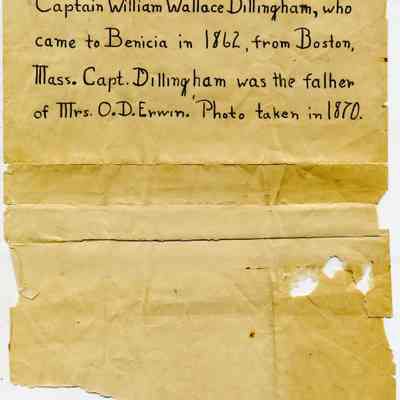 Captain William Wallace Dillingham, who
came to Benicia in 1862, from Boston,
Mass. Capt. Dillingham was the father
of Mrs. O.D. Erwin. Photo taken in 1870.